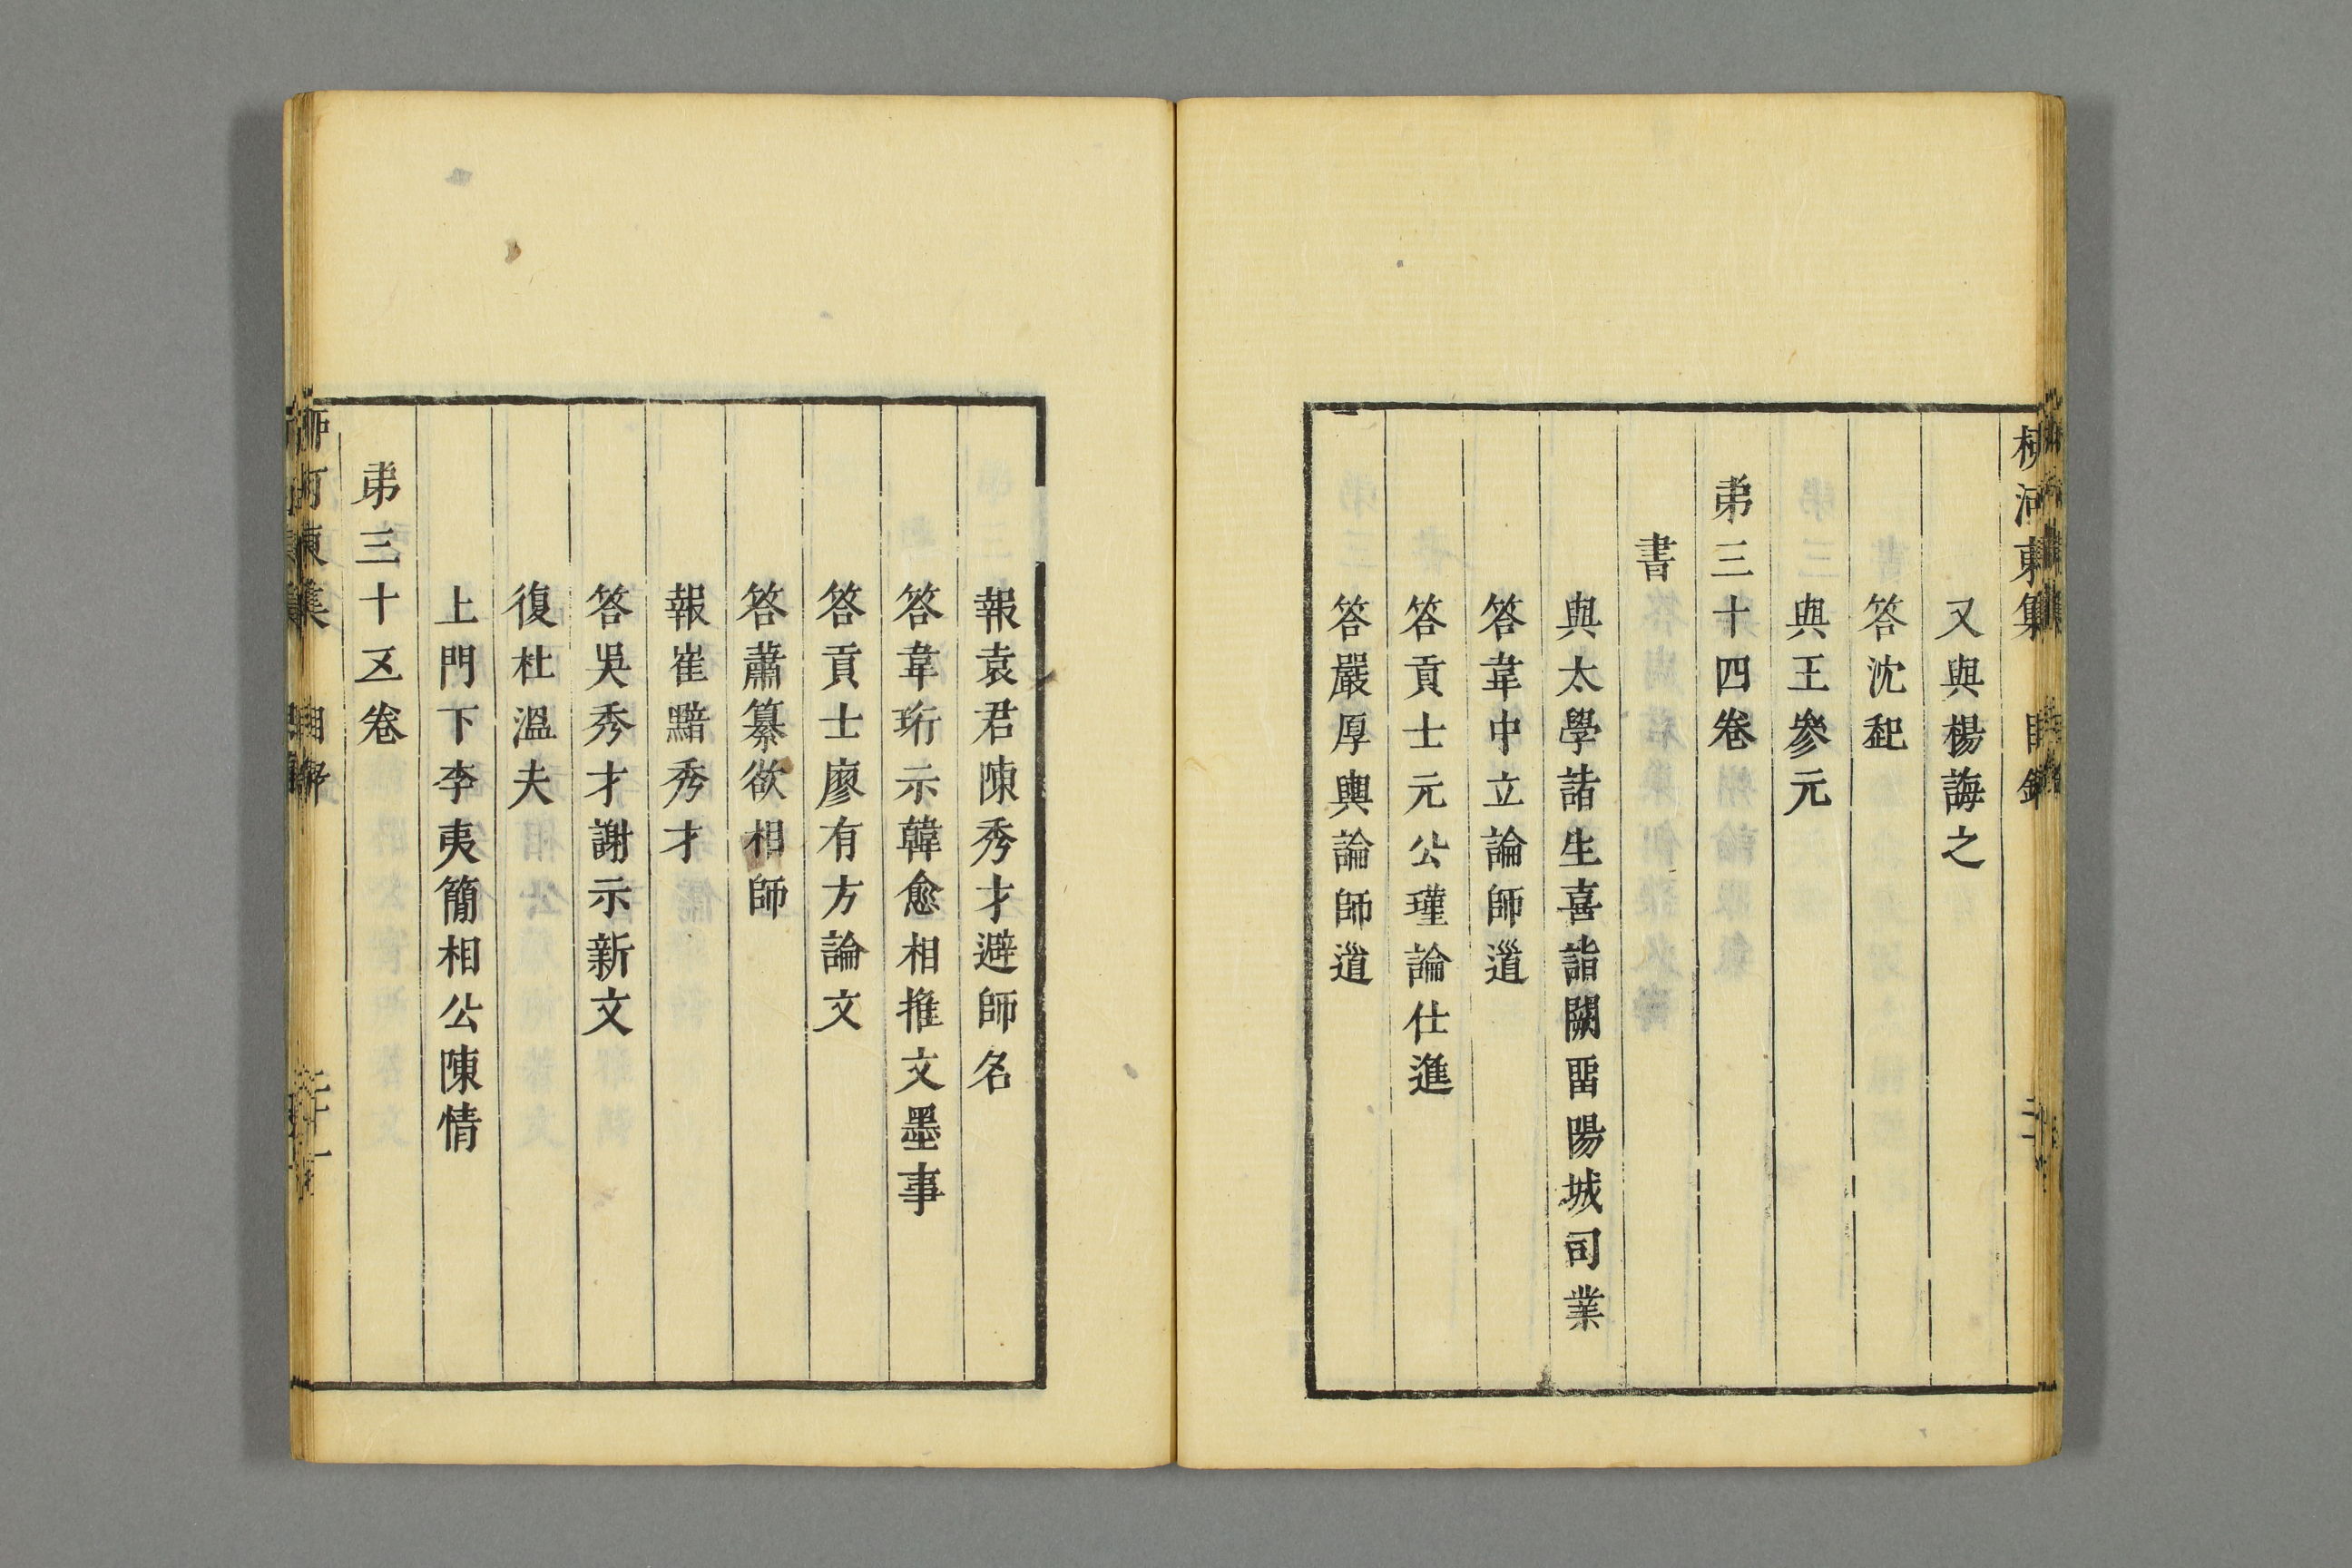 柳河東集 目錄
又與楊誨之
答沈起
與王參元
弟三十四卷
書
與太學諸生喜詣闕畱陽城司業
答韋中立論師道
答貢士元公瑾論仕進
答嚴厚輿論師道
報袁君陳秀才避師名
答韋珩示韓愈相推文墨事
答貢士廖有方論文
答蕭纂欲相師
報崔黯秀才
答吳秀才謝示新文
復杜溫夫
上門下李夷簡相公陳情
弟三十五卷
柳河東集 目錄 二十一